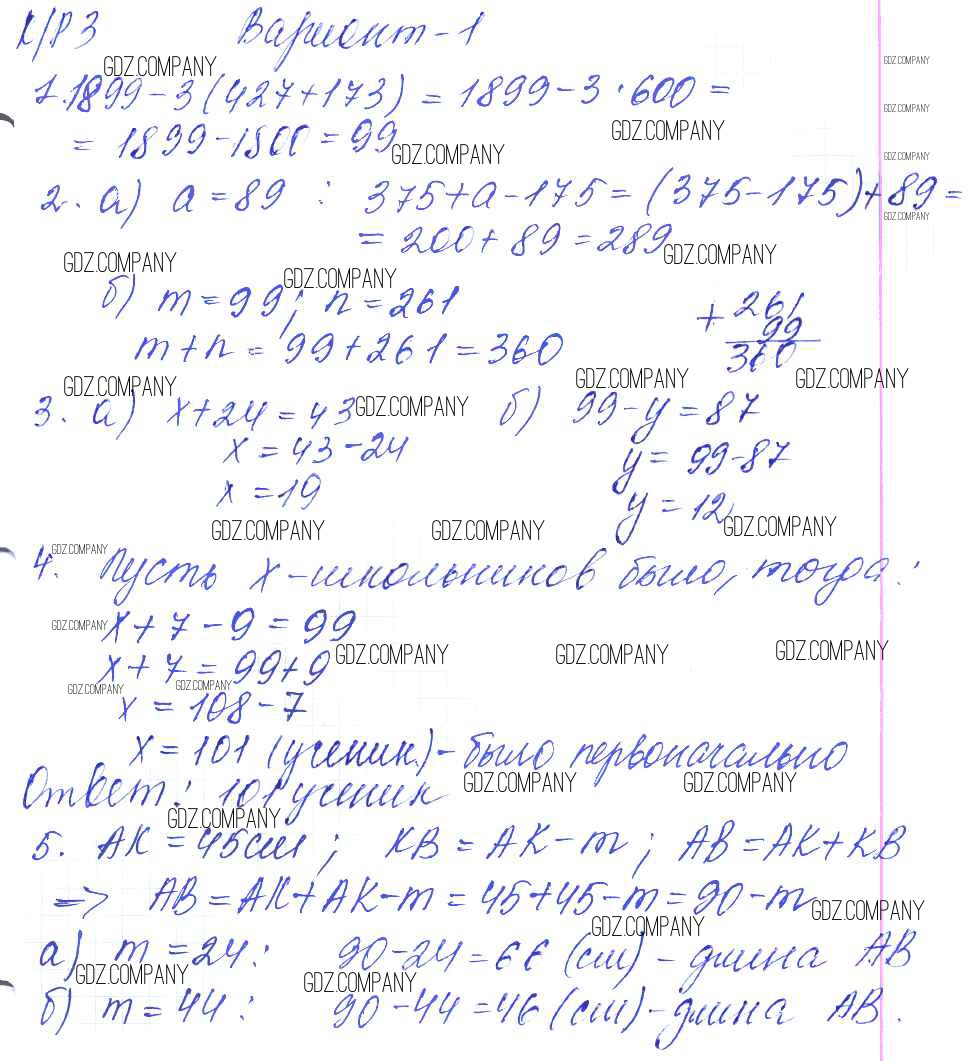 К/Р 3 Вариант-1
GDZ.COMPANY
GDZ.COMPANY
1. 1899-3(427+173) = 1899-3·600 =
GDZ.COMPANY
GDZ.COMPANY
= 1899-1800 = 99
GDZ.COMPANY
GDZ.COMPANY
2. а) a=89 : 375+a-175=(375-175)+89=
GDZ.COMPANY
= 200+89=289
GDZ.COMPANY
GDZ.COMPANY
GDZ.COMPANY
б) m=99; n=261
m+n= 99+261=360
+ 261
99
360
GDZ.COMPANY
GDZ.COMPANY
GDZ.COMPANY
3. а) x+24=43
GDZ.COMPANY
x=43-24
x=19
б) 99-y=87
y= 99-87
y=12
GDZ.COMPANY
GDZ.COMPANY
GDZ.COMPANY
GDZ.COMPANY
4. Пусть x-школьников было, тогда:
GDZ.COMPANY
x+7-9=99
GDZ.COMPANY
GDZ.COMPANY
GDZ.COMPANY
x+7=99+9
GDZ.COMPANY
GDZ.COMPANY
x=108-7
x=101 (ученик.)-было первоначально
GDZ.COMPANY
GDZ.COMPANY
Ответ: 101 ученик
GDZ.COMPANY
5. AK=45см; KB=AK-m; AB=AK+KB
=> AB=AK+AK-m=45+45-m=90-m
GDZ.COMPANY
GDZ.COMPANY
а) m=24: 90-24=66 (см) - длина AB
GDZ.COMPANY
GDZ.COMPANY
б) m=44: 90-44=46 (см)-длина AB.